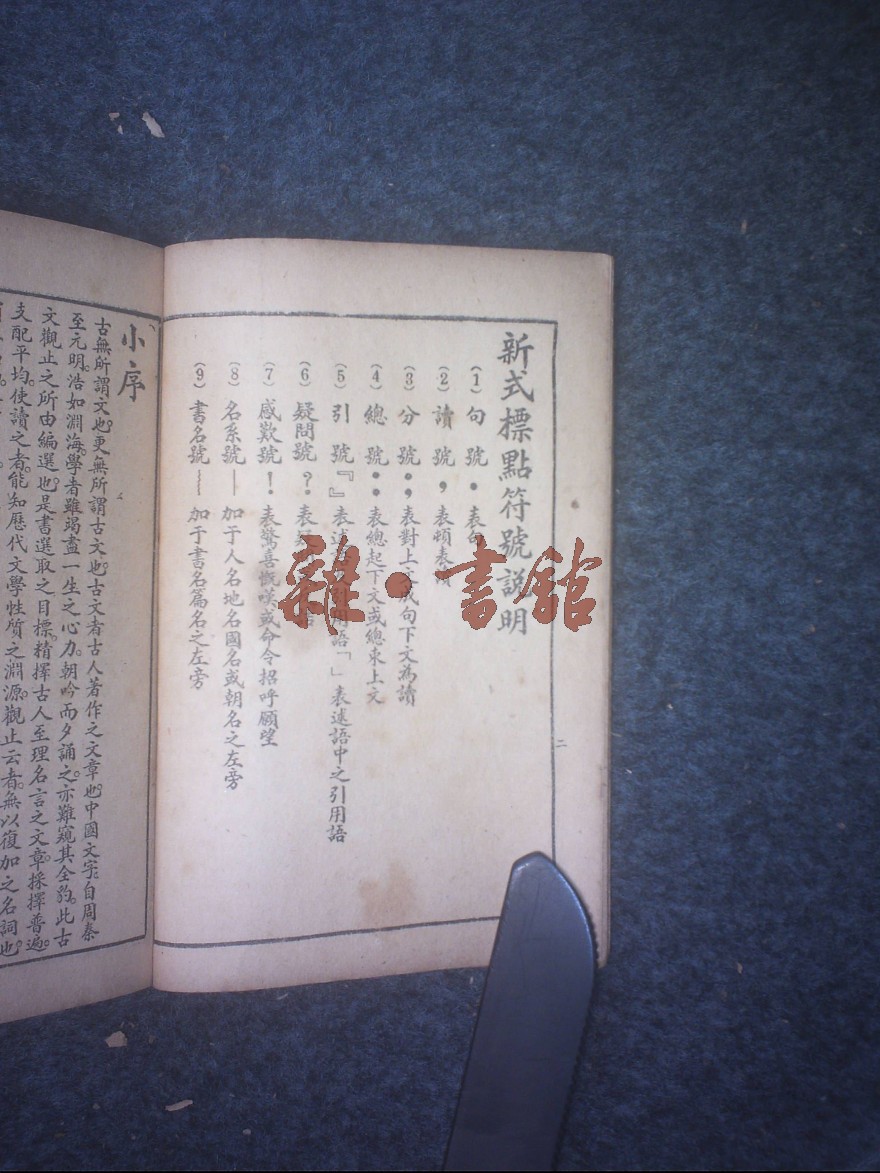 新式標點符號説明
(1) 句 號 • 表
(2) 讀 號 , 表頓
(3) 分 號 ; 表對上文成句下文為讀
(4) 總 號 : 表總起下文或總束上文
(5) 引 號 『 』 表述 引用語「 」表述語中之引用語
(6) 疑問號 ? 表
(7) 感歎號 ! 表驚喜慨嘆或命令招呼願望
(8) 名系號 — 加于人名地名國名或朝名之左旁
(9) 書名號 ﹏ 加于書名篇名之左旁
二
雜·書館
小序
古無所謂文也。更無所謂古文也。古文者古人著作之文章也。中國文字。自周秦
至元明。浩如淵海。學者雖竭盡一生之心力。朝吟而夕誦之。亦難窺其全豹。此古
文觀止之所由編選也。是書選取之目標。精擇古人至理名言之文章。採擇普遍。
支配平均。使讀之者。能知歷代文學性質之淵源。觀止云者。無以復加之名詞也。